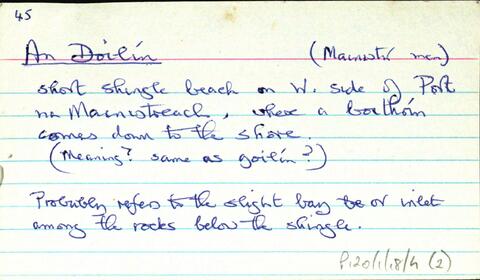 45
An Doilín (Mainistir men)
short shingle beach on W. side of Port
na Mainistreach, where a boithrín
comes down to the shore.
(Meaning? same as goilín?)
Probably refers to the slight bay or inlet
among the rocks below the shingle.
P120/1/18/4 (2)